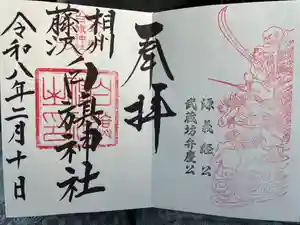 奉拝
源義経公
武蔵坊弁慶公
相州
藤沢
白旗神社
令和八年二月十日